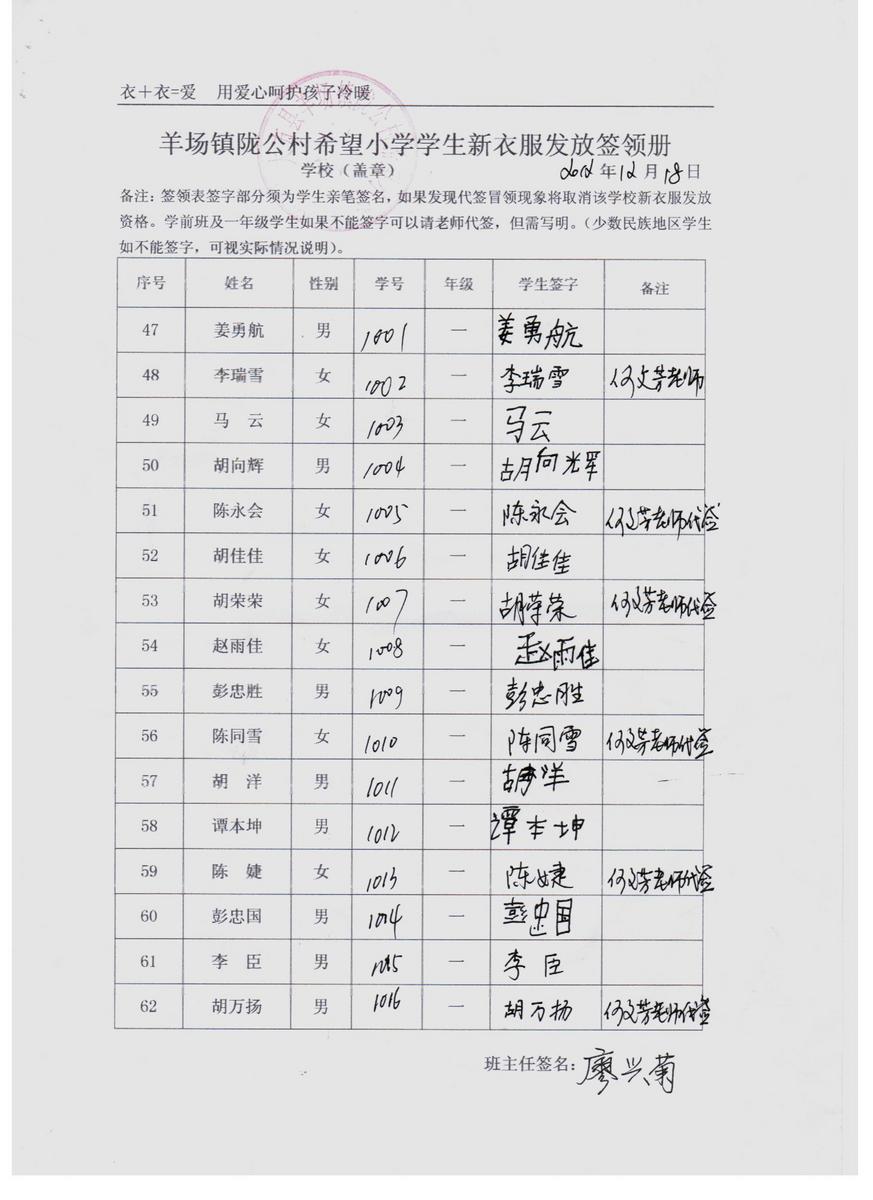 衣＋衣=爱 用爱心呵护孩子冷暖
羊场镇陇公村希望小学学生新衣服发放签领册
学校（盖章） 2012年12月18日
备注：签领表签字部分须为学生亲笔签名，如果发现代签冒领现象将取消该学校新衣服发放
资格。学前班及一年级学生如果不能签字可以请老师代签，但需写明。（少数民族地区学生
如不能签字，可视实际情况说明）。
序号 姓名 性别 学号 年级 学生签字 备注
47 姜勇航 男 1001 一 姜勇航
48 李瑞雪 女 1002 一 李瑞雪 何文芳老师
49 马 云 女 1003 一 马云
50 胡向辉 男 1004 一 胡向辉
51 陈永会 女 1005 一 陈永会 何文芳老师代签
52 胡佳佳 女 1006 一 胡佳佳
53 胡荣荣 女 1007 一 胡荣荣 何文芳老师代签
54 赵雨佳 女 1008 一 赵雨佳
55 彭忠胜 男 1009 一 彭忠胜
56 陈同雪 女 1010 一 陈同雪 何文芳老师代签
57 胡 洋 男 1011 一 胡洋
58 谭本坤 男 1012 一 谭本坤
59 陈 婕 女 1013 一 陈婕 何文芳老师代签
60 彭忠国 男 1014 一 彭忠国
61 李 臣 男 1015 一 李臣
62 胡万扬 男 1016 一 胡万扬 何文芳老师代签
班主任签名：廖兴菊